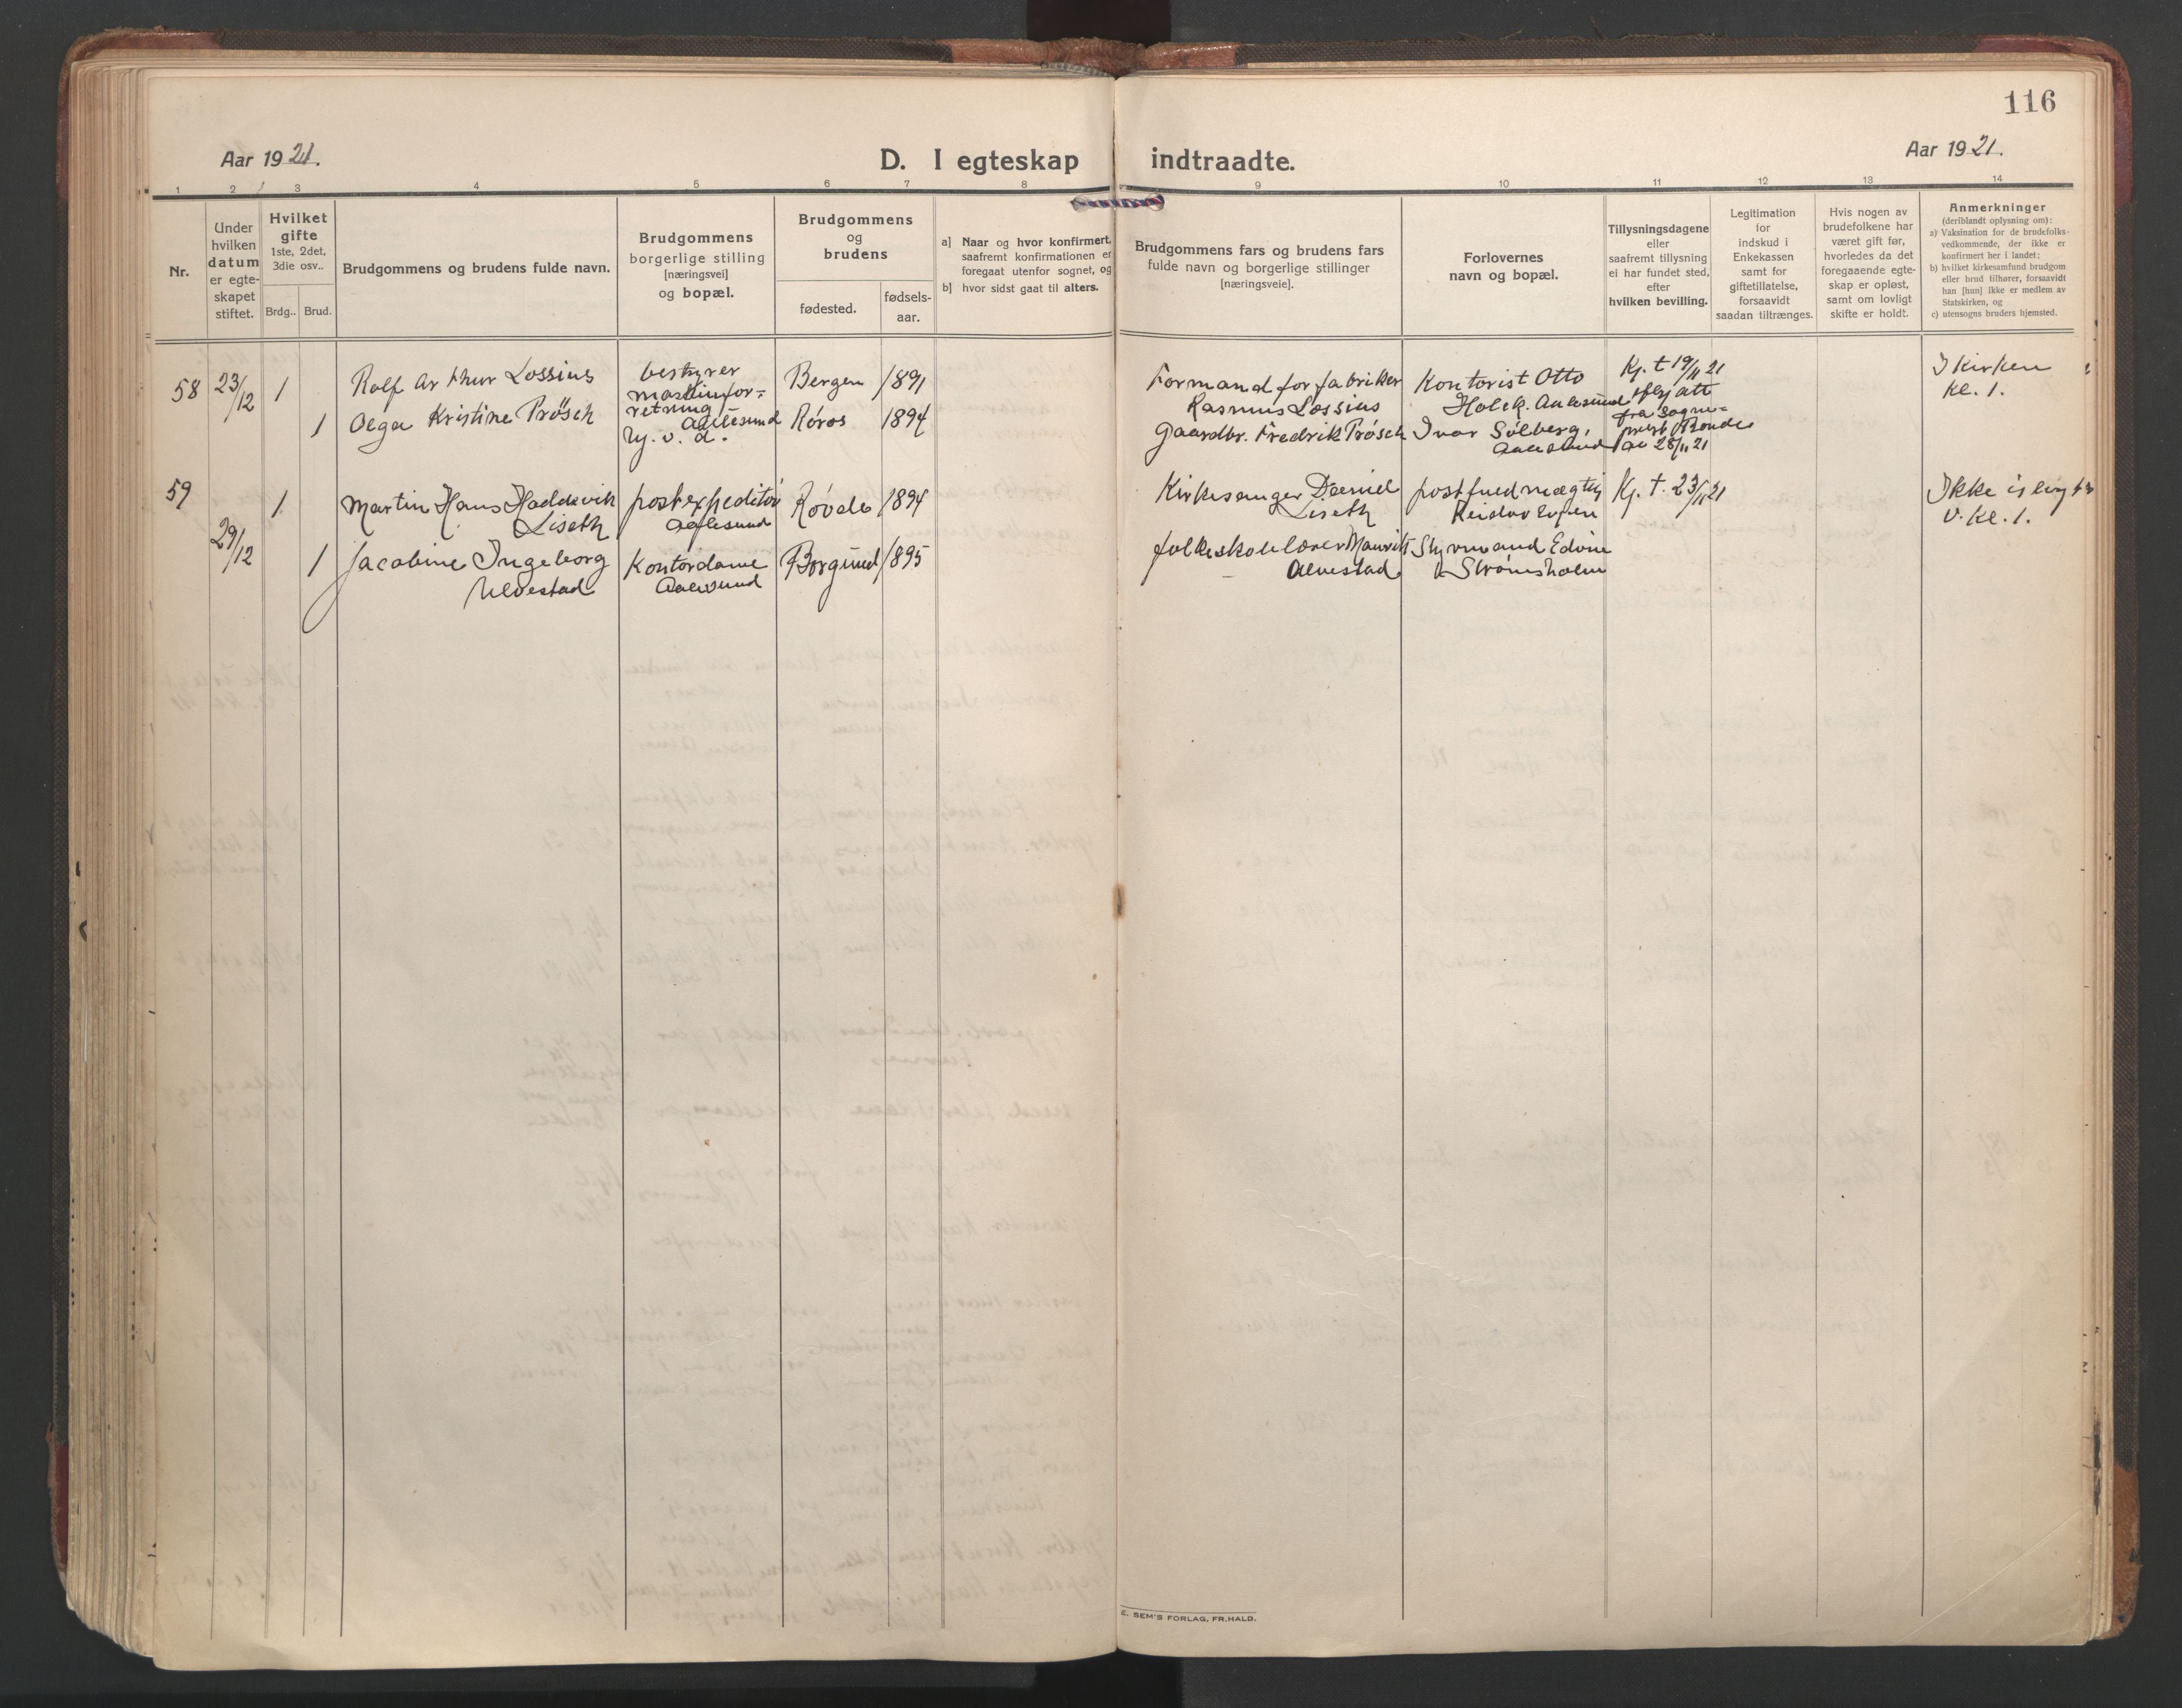 116
Aar 1921.
D. I egteskap indtraadte.
Aar 1921.
1 2 3 4 5 6 7 8 9 10 11 12 13 14
Nr.
Under
hvilken
datum
er egte-
skapet
stiftet.
Hvilket
gifte
1ste, 2det,
3die osv..
Brdg.. Brud.
Brudgommens og brudens fulde navn.
Brudgommens
borgerlige stilling
[næringsvei]
og bopæl.
Brudgommens
og
brudens
fødested.
fødsels-
aar.
a] Naar og hvor konfirmert,
saafremt konfirmationen er
foregaat utenfor sognet, og
b] hvor sidst gaat til alters.
Brudgommens fars og brudens fars
fulde navn og borgerlige stillinger
[næringsveie].
Forlovernes
navn og bopæl.
Tillysningsdagene
eller
saafremt tillysning
ei har fundet sted,
efter
hvilken bevilling.
Legitimation
for
indskud i
Enkekassen
samt for
giftetillatelse,
forsaavidt
saadan tiltrænges.
Hvis nogen av
brudefolkene har
været gift før,
hvorledes da det
foregaaende egte-
skap er opløst,
samt om lovligt
skifte er holdt.
Anmerkninger
(deriblandt oplysning om):
a) Vaksination for de brudefolks-
vedkommende, der ikke er
konfirmert her i landet;
b) hvilket kirkesamfund brudgom
eller brud tilhører, forsaavidt
han [hun] ikke er medlem av
Statskirken, og
c) utensogns bruders hjemsted.
58 23/12 1
Rolf Arthur Lossius
bestyrer
maskinfor-
retning
Aalesund
Bergen 1891
Formand for fabriker
Rasmus Lossius
Kontorist Otto
Holck. Aalesund
Kj. t 19/11 21
att
fra sogne-
prest Bonde
av 28/11 21
I kirken
kl. 1.
1
Olga Kristine Prøsch
Røros 1894
Gaardbr. Fredrik Prøsch
Ivar Solberg,
Aalesund
59
29/12
1
Martin Hans Haddevik
Liseth
postexpeditør
Aalesund
Røvde 1894
Kirkesanger Daniel
Liseth
postfuldmægtig
Kj. t. 23/11 21
Ikke
v. kl. 1.
1
Jacobine Ingeborg
Ulvestad
Kontordame
Aalesund
Borgund 1895
folkeskolelærer Maurits
Ulvestad
Styrmand Edvin
Strømsholm
E. SEM'S FORLAG, FR.HALD.